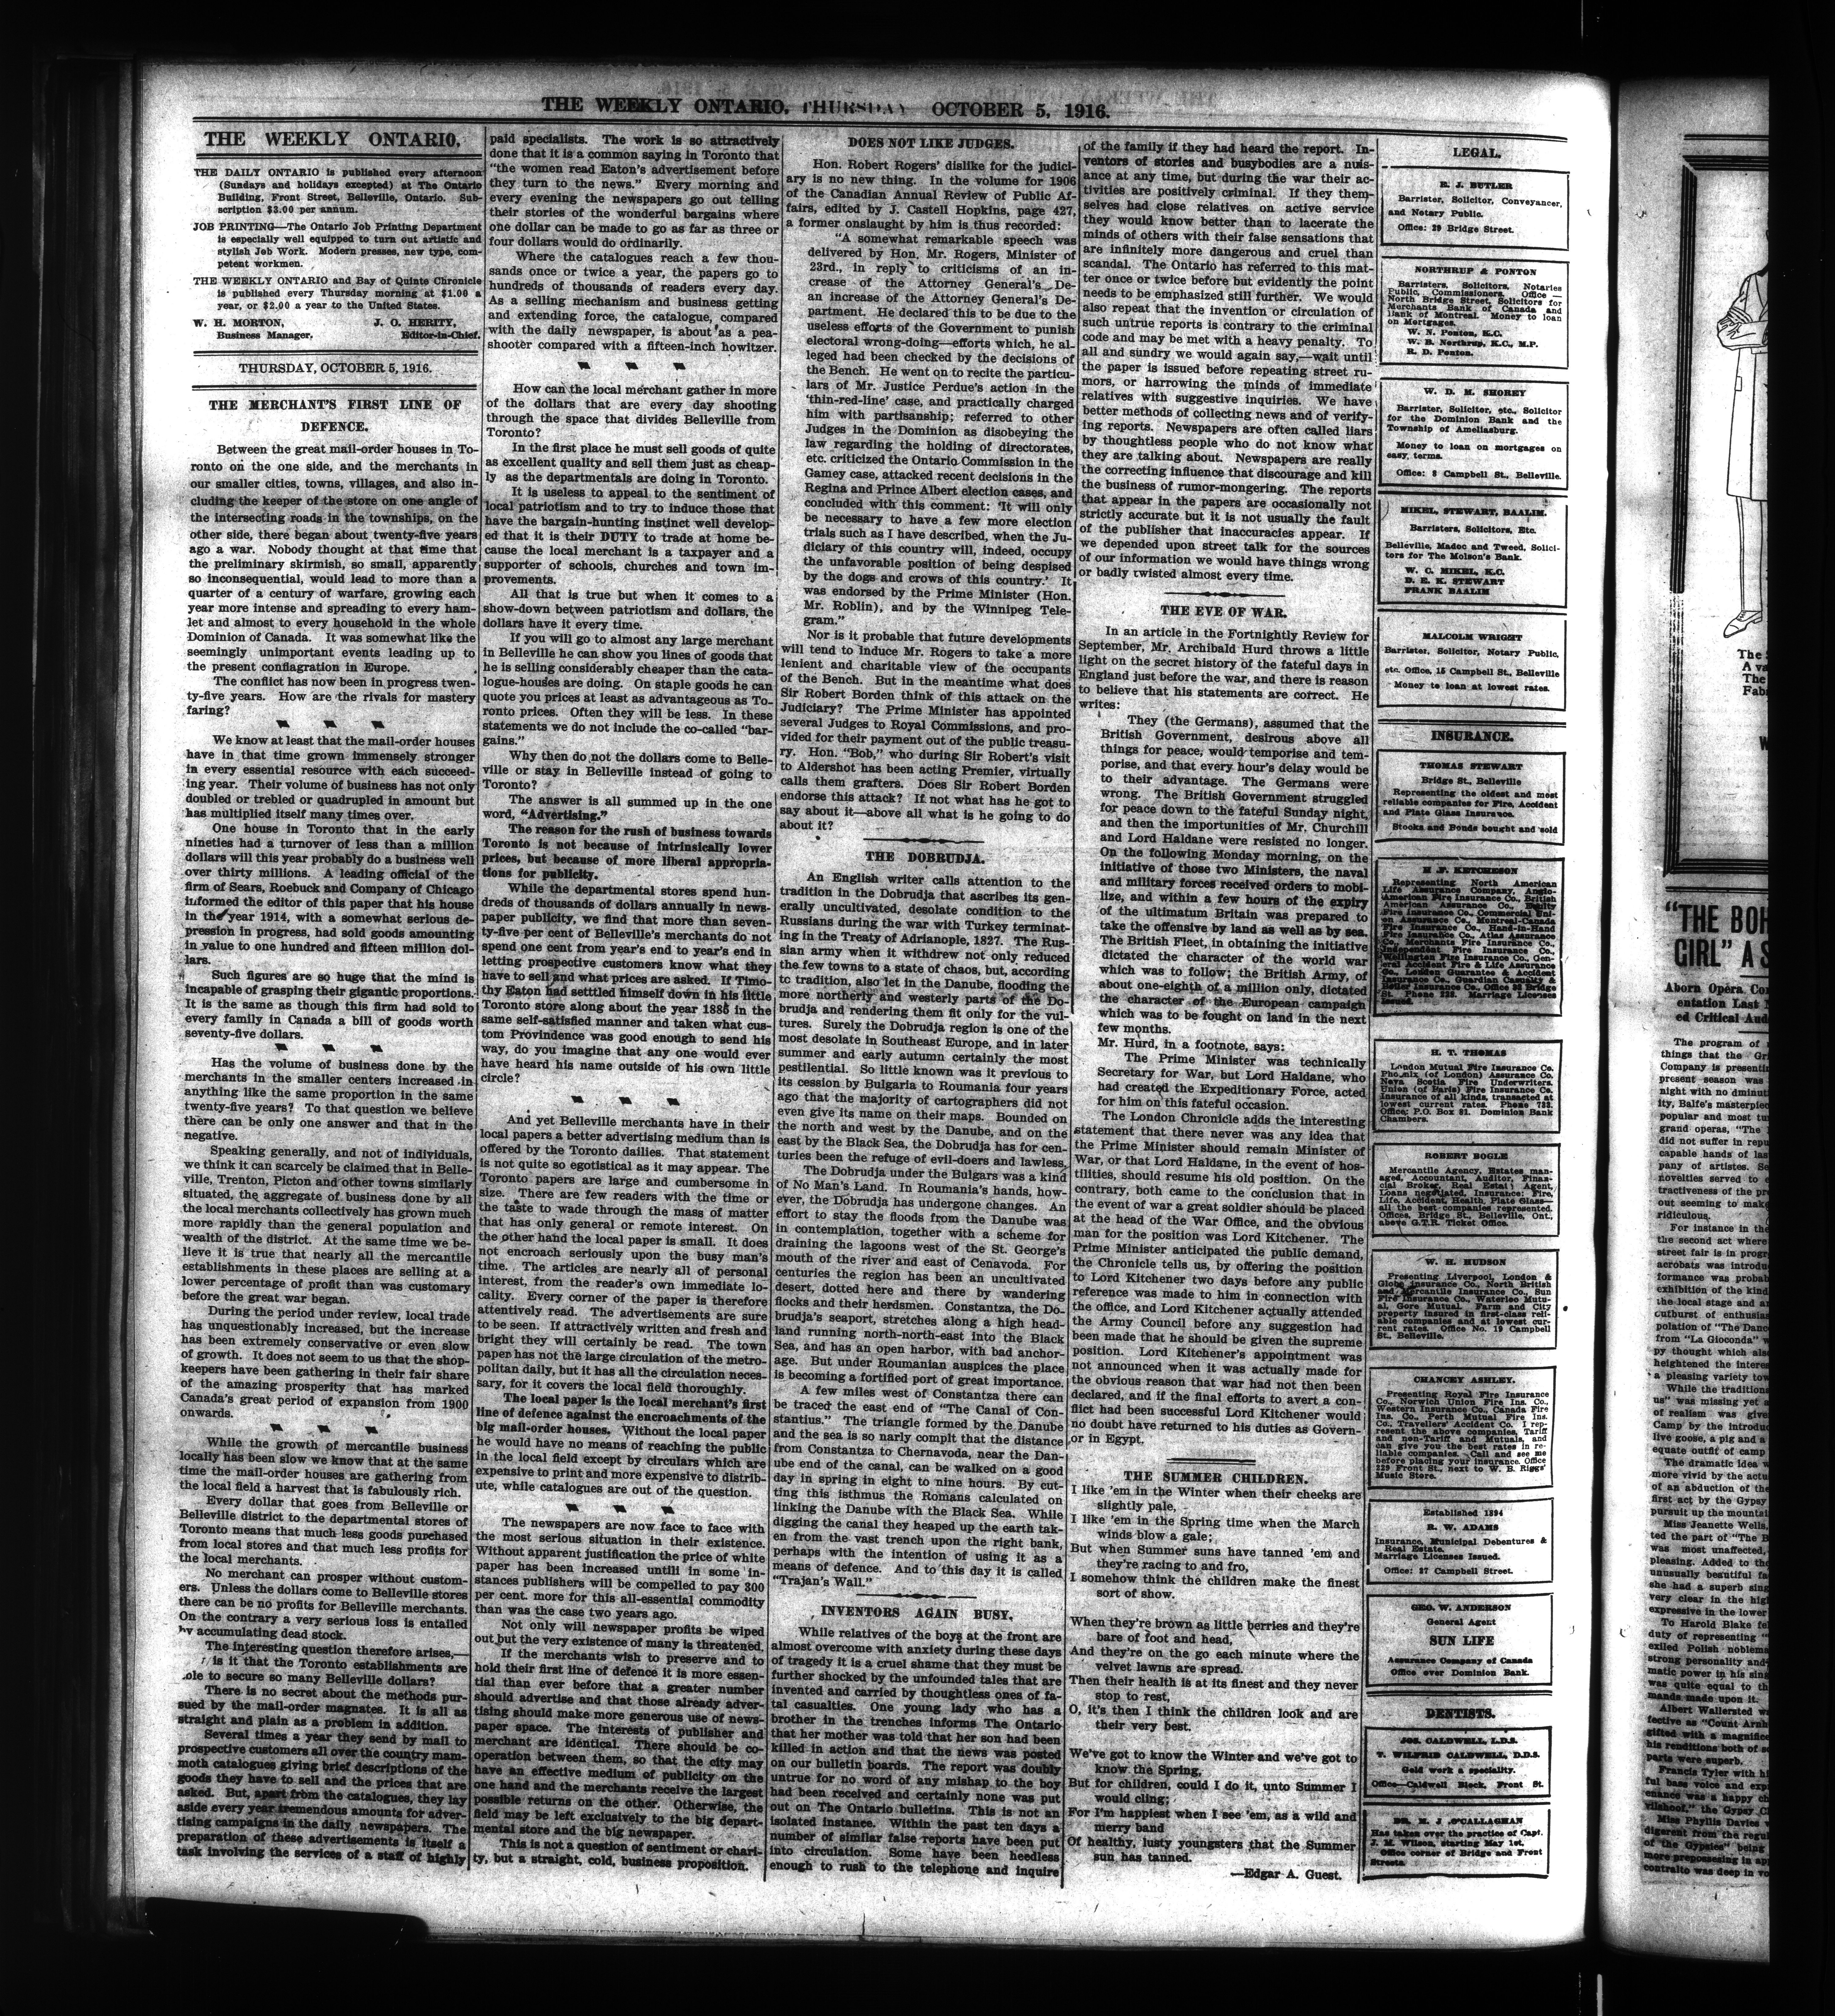 THE WEEKLY ONTARIO, THURSDAY OCTOBER 5, 1916.
THE WEEKLY ONTARIO.
THE DAILY ONTARIO is published every afternoon
(Sundays and holidays excepted) at The Ontario
Building, Front Street, Belleville, Ontario. Sub-
scription $3.00 per annum.
JOB PRINTING—The Ontario Job Printing Department
is especially well equipped to turn out artistic and
stylish Job Work. Modern presses, new type, com-
petent workmen.
THE WEEKLY ONTARIO and Bay of Quinte Chronicle
is published every Thursday morning at $1.00 a
year, or $2.00 a year to the United States.
W. H. MORTON, J. O. HERITY,
Business Manager, Editor-in-Chief.
THURSDAY, OCTOBER 5, 1916.
THE MERCHANT'S FIRST LINE OF
DEFENCE.
Between the great mail-order houses in To-
ronto on the one side, and the merchants in
our smaller cities, towns, villages, and also in-
cluding the keeper of the store on one angle of
the intersecting roads in the townships, on the
other side, there began about twenty-five years
ago a war. Nobody thought at that time that
the preliminary skirmish, so small, apparently
so inconsequential, would lead to more than a
quarter of a century of warfare, growing each
year more intense and spreading to every ham-
let and almost to every household in the whole
Dominion of Canada. It was somewhat like the
seemingly unimportant events leading up to
the present conflagration in Europe.
The conflict has now been in progress twen-
ty-five years. How are the rivals for mastery
faring?
We know at least that the mail-order houses
have in that time grown immensely stronger
in every essential resource with each succeed-
ing year. Their volume of business has not only
doubled or trebled or quadrupled in amount but
has multiplied itself many times over.
One house in Toronto that in the early
nineties had a turnover of less than a million
dollars will this year probably do a business well
over thirty millions. A leading official of the
firm of Sears, Roebuck and Company of Chicago
informed the editor of this paper that his house
in the year 1914, with a somewhat serious de-
pression in progress, had sold goods amounting
in value to one hundred and fifteen million dol-
lars.
Such figures are so huge that the mind is
incapable of grasping their gigantic proportions.
It is the same as though this firm had sold to
every family in Canada a bill of goods worth
seventy-five dollars.
Has the volume of business done by the
merchants in the smaller centers increased in
anything like the same proportion in the same
twenty-five years? To that question we believe
there can be only one answer and that in the
negative.
Speaking generally, and not of individuals,
we think it can scarcely be claimed that in Belle-
ville, Trenton, Picton and other towns similarly
situated, the aggregate of business done by all
the local merchants collectively has grown much
more rapidly than the general population and
wealth of the district. At the same time we be-
lieve it is true that nearly all the mercantile
establishments in these places are selling at a
lower percentage of profit than was customary
before the great war began.
During the period under review, local trade
has unquestionably increased, but the increase
has been extremely conservative or even slow
of growth. It does not seem to us that the shop-
keepers have been gathering in their fair share
of the amazing prosperity that has marked
Canada's great period of expansion from 1900
onwards.
While the growth of mercantile business
locally has been slow we know that at the same
time the mail-order houses are gathering from
the local field a harvest that is fabulously rich.
Every dollar that goes from Belleville or
Belleville district to the departmental stores of
Toronto means that much less goods purchased
from local stores and that much less profits for
the local merchants.
No merchant can prosper without custom-
ers. Unless the dollars come to Belleville stores
there can be no profits for Belleville merchants.
On the contrary a very serious loss is entailed
by accumulating dead stock.
The interesting question therefore arises,—
is it that the Toronto establishments are
ole to secure so many Belleville dollars?
There is no secret about the methods pur-
sued by the mail-order magnates. It is all as
straight and plain as a problem in addition.
Several times a year they send by mail to
prospective customers all over the country mam-
moth catalogues giving brief descriptions of the
goods they have to sell and the prices that are
asked. But, apart from the catalogues, they lay
aside every year tremendous amounts for adver-
tising campaigns in the daily newspapers. The
preparation of these advertisements is itself a
task involving the services of a staff of highly
paid specialists. The work is so attractively
done that it is a common saying in Toronto that
"the women read Eaton's advertisement before
they turn to the news." Every morning and
every evening the newspapers go out telling
their stories of the wonderful bargains where
one dollar can be made to go as far as three or
four dollars would do ordinarily.
Where the catalogues reach a few thou-
sands once or twice a year, the papers go to
hundreds of thousands of readers every day.
As a selling mechanism and business getting
and extending force, the catalogue, compared
with the daily newspaper, is about as a pea-
shooter compared with a fifteen-inch howitzer.
How can the local merchant gather in more
of the dollars that are every day shooting
through the space that divides Belleville from
Toronto?
In the first place he must sell goods of quite
as excellent quality and sell them just as cheap-
ly as the departmentals are doing in Toronto.
It is useless to appeal to the sentiment of
local patriotism and to try to induce those that
have the bargain-hunting instinct well develop-
ed that it is their DUTY to trade at home be-
cause the local merchant is a taxpayer and a
supporter of schools, churches and town im-
provements.
All that is true but when it comes to a
show-down between patriotism and dollars, the
dollars have it every time.
If you will go to almost any large merchant
in Belleville he can show you lines of goods that
he is selling considerably cheaper than the cata-
logue-houses are doing. On staple goods he can
quote you prices at least as advantageous as To-
ronto prices. Often they will be less. In these
statements we do not include the co-called "bar-
gains."
Why then do not the dollars come to Belle-
ville or stay in Belleville instead of going to
Toronto?
The answer is all summed up in the one
word, "Advertising."
The reason for the rush of business towards
Toronto is not because of intrinsically lower
prices, but because of more liberal appropria-
tions for publicity.
While the departmental stores spend hun-
dreds of thousands of dollars annually in news-
paper publicity, we find that more than seven-
ty-five per cent of Belleville's merchants do not
spend one cent from year's end to year's end in
letting prospective customers know what they
have to sell and what prices are asked. If Timo-
thy Eaton had setttled himself down in his little
Toronto store along about the year 1885 in the
same self-satisfied manner and taken what cus-
tom Provindence was good enough to send his
way, do you imagine that any one would ever
have heard his name outside of his own little
circle?
And yet Belleville merchants have in their
local papers a better advertising medium than is
offered by the Toronto dailies. That statement
is not quite so egotistical as it may appear. The
Toronto papers are large and cumbersome in
size. There are few readers with the time or
the taste to wade through the mass of matter
that has only general or remote interest. On
the other hand the local paper is small. It does
not encroach seriously upon the busy man's
time. The articles are nearly all of personal
interest, from the reader's own immediate lo-
cality. Every corner of the paper is therefore
attentively read. The advertisements are sure
to be seen. If attractively written and fresh and
bright they will certainly be read. The town
paper has not the large circulation of the metro-
politan daily, but it has all the circulation neces-
sary, for it covers the local field thoroughly.
The local paper is the local merchant's first
line of defence against the encroachments of the
big mail-order houses. Without the local paper
he would have no means of reaching the public
in the local field except by circulars which are
expensive to print and more expensive to distrib-
ute, while catalogues are out of the question.
The newspapers are now face to face with
the most serious situation in their existence.
Without apparent justification the price of white
paper has been increased untill in some in-
stances publishers will be compelled to pay 300
per cent. more for this all-essential commodity
than was the case two years ago.
Not only will newspaper profits be wiped
out but the very existence of many is threatened.
If the merchants wish to preserve and to
hold their first line of defence it is more essen-
tial than ever before that a greater number
should advertise and that those already adver-
tising should make more generous use of news-
paper space. The interests of publisher and
merchant are identical. There should be co-
operation between them, so that the city may
have an effective medium of publicity on the
one hand and the merchants receive the largest
possible returns on the other. Otherwise, the
field may be left exclusively to the big depart-
mental store and the big newspaper.
This is not a question of sentiment or chari-
ty, but a straight, cold, business proposition.
DOES NOT LIKE JUDGES.
Hon. Robert Rogers' dislike for the judici-
ary is no new thing. In the volume for 1906
of the Canadian Annual Review of Public Af-
fairs, edited by J. Castell Hopkins, page 427,
a former onslaught by him is thus recorded:
"A somewhat remarkable speech was
delivered by Hon. Mr. Rogers, Minister of
23rd., in reply to criticisms of an in-
crease of the Attorney General's De-
an increase of the Attorney General's De-
partment. He declared this to be due to the
useless efforts of the Government to punish
electoral wrong-doing—efforts which, he al-
leged had been checked by the decisions of
the Bench. He went on to recite the particu-
lars of Mr. Justice Perdue's action in the
'thin-red-line' case, and practically charged
him with partisanship; referred to other
Judges in the Dominion as disobeying the
law regarding the holding of directorates,
etc. criticized the Ontario Commission in the
Gamey case, attacked recent decisions in the
Regina and Prince Albert election cases, and
concluded with this comment: 'It will only
be necessary to have a few more election
trials such as I have described, when the Ju-
diciary of this country will, indeed, occupy
the unfavorable position of being despised
by the dogs and crows of this country.' It
was endorsed by the Prime Minister (Hon.
Mr. Roblin), and by the Winnipeg Tele-
gram."
Nor is it probable that future developments
will tend to induce Mr. Rogers to take a more
lenient and charitable view of the occupants
of the Bench. But in the meantime what does
Sir Robert Borden think of this attack on the
Judiciary? The Prime Minister has appointed
several Judges to Royal Commissions, and pro-
vided for their payment out of the public treasu-
ry. Hon. "Bob," who during Sir Robert's visit
to Aldershot has been acting Premier, virtually
calls them grafters. Does Sir Robert Borden
endorse this attack? If not what has he got to
say about it—above all what is he going to do
about it?
THE DOBRUDJA.
An English writer calls attention to the
tradition in the Dobrudja that ascribes its gen-
erally uncultivated, desolate condition to the
Russians during the war with Turkey terminat-
ing in the Treaty of Adrianople, 1827. The Rus-
sian army when it withdrew not only reduced
the few towns to a state of chaos, but, according
to tradition, also let in the Danube, flooding the
more northerly and westerly parts of the Do-
brudja and rendering them fit only for the vul-
tures. Surely the Dobrudja region is one of the
most desolate in Southeast Europe, and in later
summer and early autumn certainly the most
pestilential. So little known was it previous to
its cession by Bulgaria to Roumania four years
ago that the majority of cartographers did not
even give its name on their maps. Bounded on
the north and west by the Danube, and on the
east by the Black Sea, the Dobrudja has for cen-
turies been the refuge of evil-doers and lawless.
The Dobrudja under the Bulgars was a kind
of No Man's Land. In Roumania's hands, how-
ever, the Dobrudja has undergone changes. An
effort to stay the floods from the Danube was
in contemplation, together with a scheme for
draining the lagoons west of the St. George's
mouth of the river and east of Cenavoda. For
centuries the region has been an uncultivated
desert, dotted here and there by wandering
flocks and their herdsmen. Constantza, the Do-
brudja's seaport, stretches along a high head-
land running north-north-east into the Black
Sea, and has an open harbor, with bad anchor-
age. But under Roumanian auspices the place
is becoming a fortified port of great importance.
A few miles west of Constantza there can
be traced the east end of "The Canal of Con-
stantius." The triangle formed by the Danube
and the sea is so narly complt that the distance
from Constantza to Chernavoda, near the Dan-
ube end of the canal, can be walked on a good
day in spring in eight to nine hours. By cut-
ting this isthmus the Romans calculated on
linking the Danube with the Black Sea. While
digging the canal they heaped up the earth tak-
en from the vast trench upon the right bank,
perhaps with the intention of using it as a
means of defence. And to this day it is called
"Trajan's Wall."
INVENTORS AGAIN BUSY.
While relatives of the boys at the front are
almost overcome with anxiety during these days
of tragedy it is a cruel shame that they must be
further shocked by the unfounded tales that are
invented and carried by thoughtless ones of fa-
tal casualties. One young lady who has a
brother in the trenches informs The Ontario
that her mother was told that her son had been
killed in action and that the news was posted
on our bulletin boards. The report was doubly
untrue for no word of any mishap to the boy
had been received and certainly none was put
out on The Ontario bulletins. This is not an
isolated instance. Within the past ten days a
number of similar false reports have been put
into circulation. Some have been heedless
enough to rush to the telephone and inquire
of the family if they had heard the report. In-
ventors of stories and busybodies are a nuis-
ance at any time, but during the war their ac-
tivities are positively criminal. If they them-
selves had close relatives on active service
they would know better than to lacerate the
minds of others with their false sensations that
are infinitely more dangerous and cruel than
scandal. The Ontario has referred to this mat-
ter once or twice before but evidently the point
needs to be emphasized still further. We would
also repeat that the invention or circulation of
such untrue reports is contrary to the criminal
code and may be met with a heavy penalty. To
all and sundry we would again say,—wait until
the paper is issued before repeating street ru-
mors, or harrowing the minds of immediate
relatives with suggestive inquiries. We have
better methods of collecting news and of verify-
ing reports. Newspapers are often called liars
by thoughtless people who do not know what
they are talking about. Newspapers are really
the correcting influence that discourage and kill
the business of rumor-mongering. The reports
that appear in the papers are occasionally not
strictly accurate but it is not usually the fault
of the publisher that inaccuracies appear. If
we depended upon street talk for the sources
of our information we would have things wrong
or badly twisted almost every time.
THE EVE OF WAR.
In an article in the Fortnightly Review for
September, Mr. Archibald Hurd throws a little
light on the secret history of the fateful days in
England just before the war, and there is reason
to believe that his statements are correct. He
writes:
They (the Germans), assumed that the
British Government, desirous above all
things for peace, would temporise and tem-
porise, and that every hour's delay would be
to their advantage. The Germans were
wrong. The British Government struggled
for peace down to the fateful Sunday night,
and then the importunities of Mr. Churchill
and Lord Haldane were resisted no longer.
On the following Monday morning, on the
initiative of those two Ministers, the naval
and military forces received orders to mobi-
lize, and within a few hours of the expiry
of the ultimatum Britain was prepared to
take the offensive by land as well as by sea.
The British Fleet, in obtaining the initiative
dictated the character of the world war
which was to follow; the British Army, of
about one-eighth of a million only, dictated
the character of the European campaign
which was to be fought on land in the next
few months.
Mr. Hurd, in a footnote, says:
The Prime Minister was technically
Secretary for War, but Lord Haldane, who
had created the Expeditionary Force, acted
for him on this fateful occasion.
The London Chronicle adds the interesting
statement that there never was any idea that
the Prime Minister should remain Minister of
War, or that Lord Haldane, in the event of hos-
tilities, should resume his old position. On the
contrary, both came to the conclusion that in
the event of war a great soldier should be placed
at the head of the War Office, and the obvious
man for the position was Lord Kitchener. The
Prime Minister anticipated the public demand,
the Chronicle tells us, by offering the position
to Lord Kitchener two days before any public
reference was made to him in connection with
the office, and Lord Kitchener actually attended
the Army Council before any suggestion had
been made that he should be given the supreme
position. Lord Kitchener's appointment was
not announced when it was actually made for
the obvious reason that war had not then been
declared, and if the final efforts to avert a con-
flict had been successful Lord Kitchener would
no doubt have returned to his duties as Govern-
or in Egypt.
THE SUMMER CHILDREN.
I like 'em in the Winter when their cheeks are
slightly pale,
I like 'em in the Spring time when the March
winds blow a gale;
But when Summer suns have tanned 'em and
they're racing to and fro,
I somehow think the children make the finest
sort of show.
When they're brown as little berries and they're
bare of foot and head,
And they're on the go each minute where the
velvet lawns are spread.
Then their health is at its finest and they never
stop to rest,
O, it's then I think the children look and are
their very best.
We've got to know the Winter and we've got to
know the Spring,
But for children, could I do it, unto Summer I
would cling;
For I'm happiest when I see 'em, as a wild and
merry band
Of healthy, lusty youngsters that the Summer
sun has tanned.
—Edgar A. Guest.
LEGAL.
R. J. BUTLER
Barrister, Solicitor, Conveyancer,
and Notary Public.
Office: 29 Bridge Street.
NORTHRUP & PONTON
Barristers, Solicitors, Notaries
Public, Commissioners. Office —
North Bridge Street, Solicitors for
Merchants Bank of Canada and
Bank of Montreal. Money to loan
on Mortgages.
W. N. Ponton, K.C.
W. B. Northrup, K.C., M.P.
R. D. Ponton.
W. D. M. SHOREY
Barrister, Solicitor, etc., Solicitor
for the Dominion Bank and the
Township of Ameliasburg.
Money to loan on mortgages on
easy, terms.
Office: 8 Campbell St., Belleville.
MIKEL, STEWART, BAALIM.
Barristers, Solicitors, Etc.
Belleville, Madoc and Tweed, Solici-
tors for The Molson's Bank.
W. C. MIKEL, K.C.
D. E. K. STEWART
FRANK BAALIM
MALCOLM WRIGHT
Barrister, Solicitor, Notary Public,
etc. Office, 15 Campbell St., Belleville
Money to loan at lowest rates.
INSURANCE.
THOMAS STEWART
Bridge St., Belleville
Representing the oldest and most
reliable companies for Fire, Accident
and Plate Glass Insurance.
Stocks and Bonds bought and sold
H .F. KETCHESON
Representing North American
Life Assurance Company, Anglo-
American Fire Insurance Co., British
American Assurance Co., Equity
Fire Insurance Co., Commercial Uni-
on Assurance Co., Montreal-Canada
Fire Insurance Co., Hand-in-Hand
Fire Insurance Co., Atlas Assurance
Co., Merchants Fire Insurance Co.,
Independent Fire Insurance Co.,
Wellington Fire Insurance Co., Gen-
eral Accident Fire & Life Assurance
Co., London Guarantee & Accident
Insurance Co., Guardian Casualty &
Insurance Co., Office Bridge
St. Phone 228. Marriage Licenses
Issued.
H. T. THOMAS
London Mutual Fire Insurance Co.
Phoenix (of London) Assurance Co.
Nova Scotia Fire Underwriters.
Union (of Paris) Fire Insurance Co.
Insurance of all kinds, transacted at
lowest current rates. Phone 733.
Office: P.O. Box 81. Dominion Bank
Chambers.
ROBERT BOGLE
Mercantile Agency, Estates man-
aged, Accountant, Auditor, Finan-
cial Broker, Real Estate Agent,
Loans negotiated, Insurance: Fire,
Life, Accident, Health, Plate Glass—
all the best companies represented.
Offices, Bridge St., Belleville, Ont.,
above G.T.R. Ticket Office.
W. H. HUDSON
Presenting Liverpool, London &
Globe Insurance Co., North British
and Mercantile Insurance Co., Sun
Fire Insurance Co., Waterloo Mutu-
al, Gore Mutual. Farm and City
property insured in first-class reli-
able companies and at lowest cur-
rent rates. Office No. 19 Campbell
St., Belleville.
CHANCEY ASHLEY.
Presenting Royal Fire Insurance
Co., Norwich Union Fire Ins. Co.,
Western Insurance Co., Canada Fire
Ins. Co., Perth Mutual Fire Ins.
Co., Travellers' Accident Co. I rep-
resent the above companies, Tariff
and non-Tariff and Mutuals, and
can give you the best rates in re-
liable companies. Call and see me
before placing your insurance. Office
229 Front St., next to W. B. Riggs'
Music Store.
Established 1894
R. W. ADAMS
Insurance, Municipal Debentures &
Real Estate.
Marriage Licenses Issued.
Office: 27 Campbell Street.
GEO. W. ANDERSON
General Agent
SUN LIFE
Assurance Company of Canada
Office over Dominion Bank.
DENTISTS.
JOS. CALDWELL, L.D.S.
T. WILFRID CALDWELL, D.D.S.
Gold work a speciality.
Office—Caldwell Block, Front St.
DR. M. J O'CALLAGHAN
Has taken over the practice of Capt.
J. M. Wilson, starting May 1st.
Office corner of Bridge and Front
Streets.
"THE BOH
GIRL" A S
Aborn Opera Co
entation Last
ed Critical Aud
The program of
things that the Gri
Company is presenti
present season was
night with no dminut
ity, Balfe's masterpiec
popular and most tu
grand operas, "The
did not suffer in repu
capable hands of las
pany of artistes. Se
novelties served to e
tractiveness of the pr
out seeming to make
ridiculous.
For instance in the
the second act where
street fair is in progr
acrobats was introdu
formance was probab
exhibition of the kind
the local stage and an
outburst of enthusias
polation of "The Danc
from "La Gioconda" w
py thought which als
heightened the interes
a pleasing variety tow
While the tradition
us" was missing yet a
of realism was give
Camp by the introduc
live goose, a pig and a
equate outfit of camp
The dramatic idea w
more vivid by the actu
of an abduction of the
first act by the Gypsy
pursuit up the mountai
Miss Jeanette Wells,
ted the part of "The B
was most unaffected,
pleasing. Added to the
unusually beautiful fa
she had a superb sing
very clear in the high
expressive in the lower
To Harold Blake fe
duty of representing "
exiled Polish noblema
strong personality and
matic power in his sing
was quite equal to th
mands made upon it.
Albert Wallerated w
fective as "Count Arnh
gifted with a magnifice
his renditions both of s
parts were superb.
Francis Tyler with hi
ful bass voice and exp
enance was a happy ch
vilshoof," the Gypsy C
Miss Phyllis Davies w
digerent from the regul
of the Gypsies" being
more prepossessing in ap
contralto was deep in vo